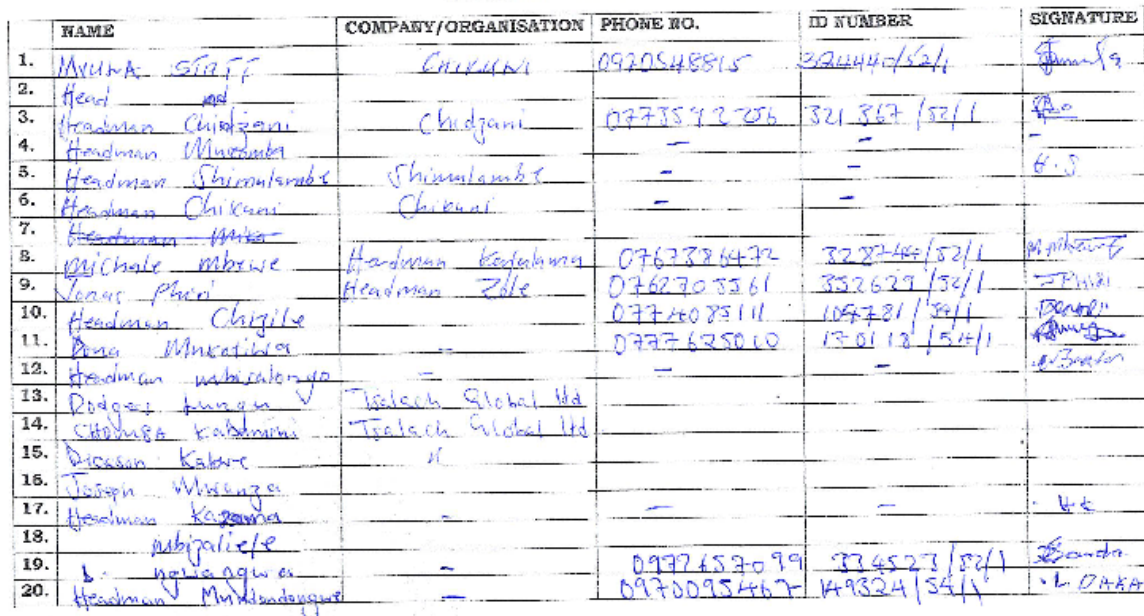 NAME COMPANY/ORGANISATION PHONE NO. ID NUMBER SIGNATURE
1. MVUWA STAFF CHIKUNI 0970548815 324440/52/1
2. Head
3. Headman Chidzani Chidzani 321367/52/1
4. Headman - - -
5. Headman Shimulambe Shimulambe - - H.S
6. Headman Chikuni Chikuni - -
7. Headman Mika
8. Michale Mbewe Headman 0767386472 328744/52/1
9. Jonas Phiri Headman Zole 0762703561 352629/52/1 J PHIRI
10. Headman Chizile 0774085111 109781/54/1
11. Dona - 0777625010 170118/54/1
12. Headman - - -
13. Rodgers Lungu Tsalach Global ltd
14. CHOMBA Kabamini Tsalach Global ltd
15. Dickson Kabwe "
16. Joseph Mwanza
17. Headman Kazoma - - -
18.
19. - 0977657099 334523/52/1 Banda
20. Headman - 0970095467 149324/54/1 L DAKA